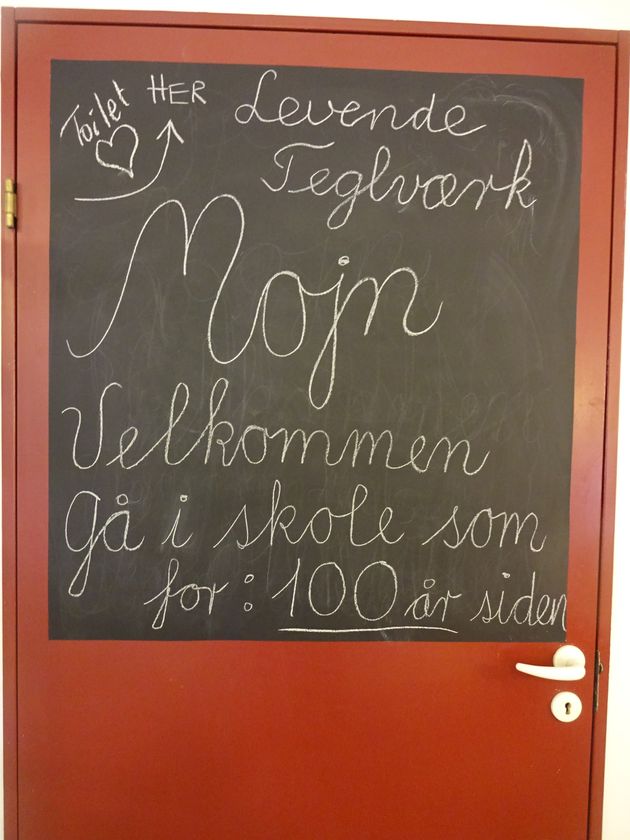 Toilet HER
Levende
Teglværk
Mojn
Velkommen
Gå i skole som
for: 100 år siden